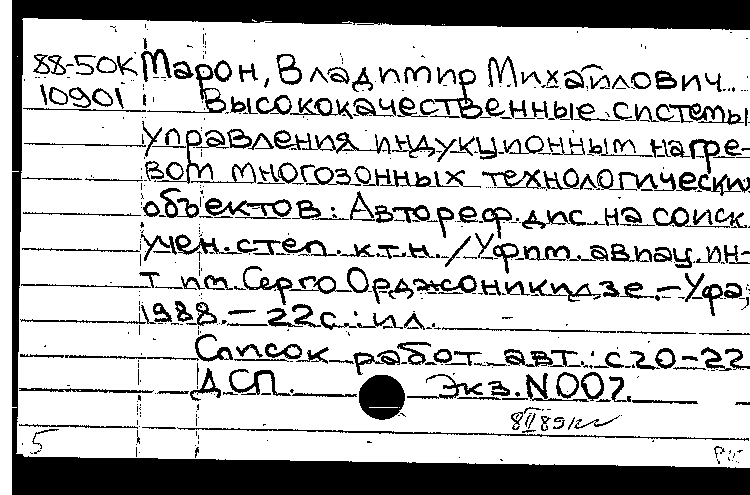 88-50К Марон, Владимир Михайлович.
10901 Высококачественные системы
управления индукционным нагре-
вом многозонных технологических
объектов: Автореф. дис. на соиск.
учен. степ. к.т.н. / Уфим. авиац. ин-
т им. Серго Орджоникидзе. – Уфа,
1988. – 22с.: ил.
Список работ авт.: с 20-22
ДСП. Экз. N007.
5